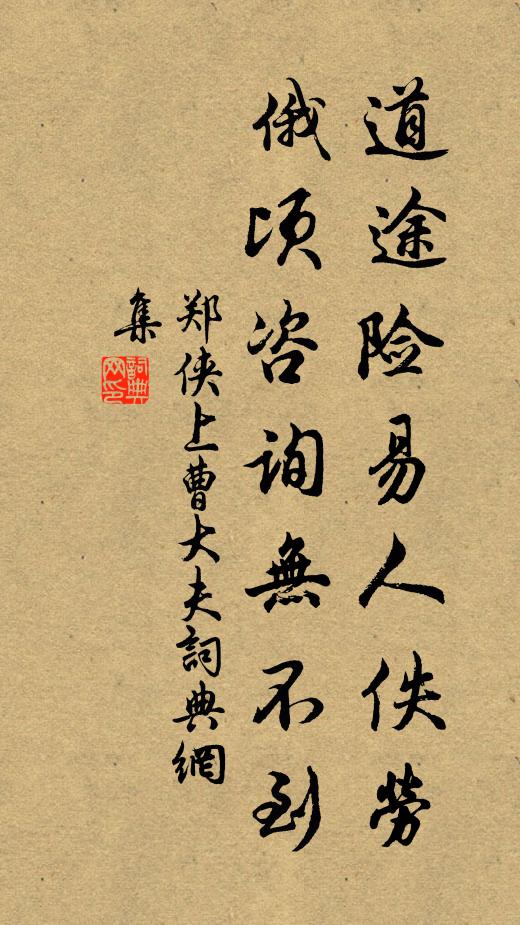 道途险易人佚劳
俄顷咨询無不到
郑侠上曹大夫詞典網
集
詞典網印